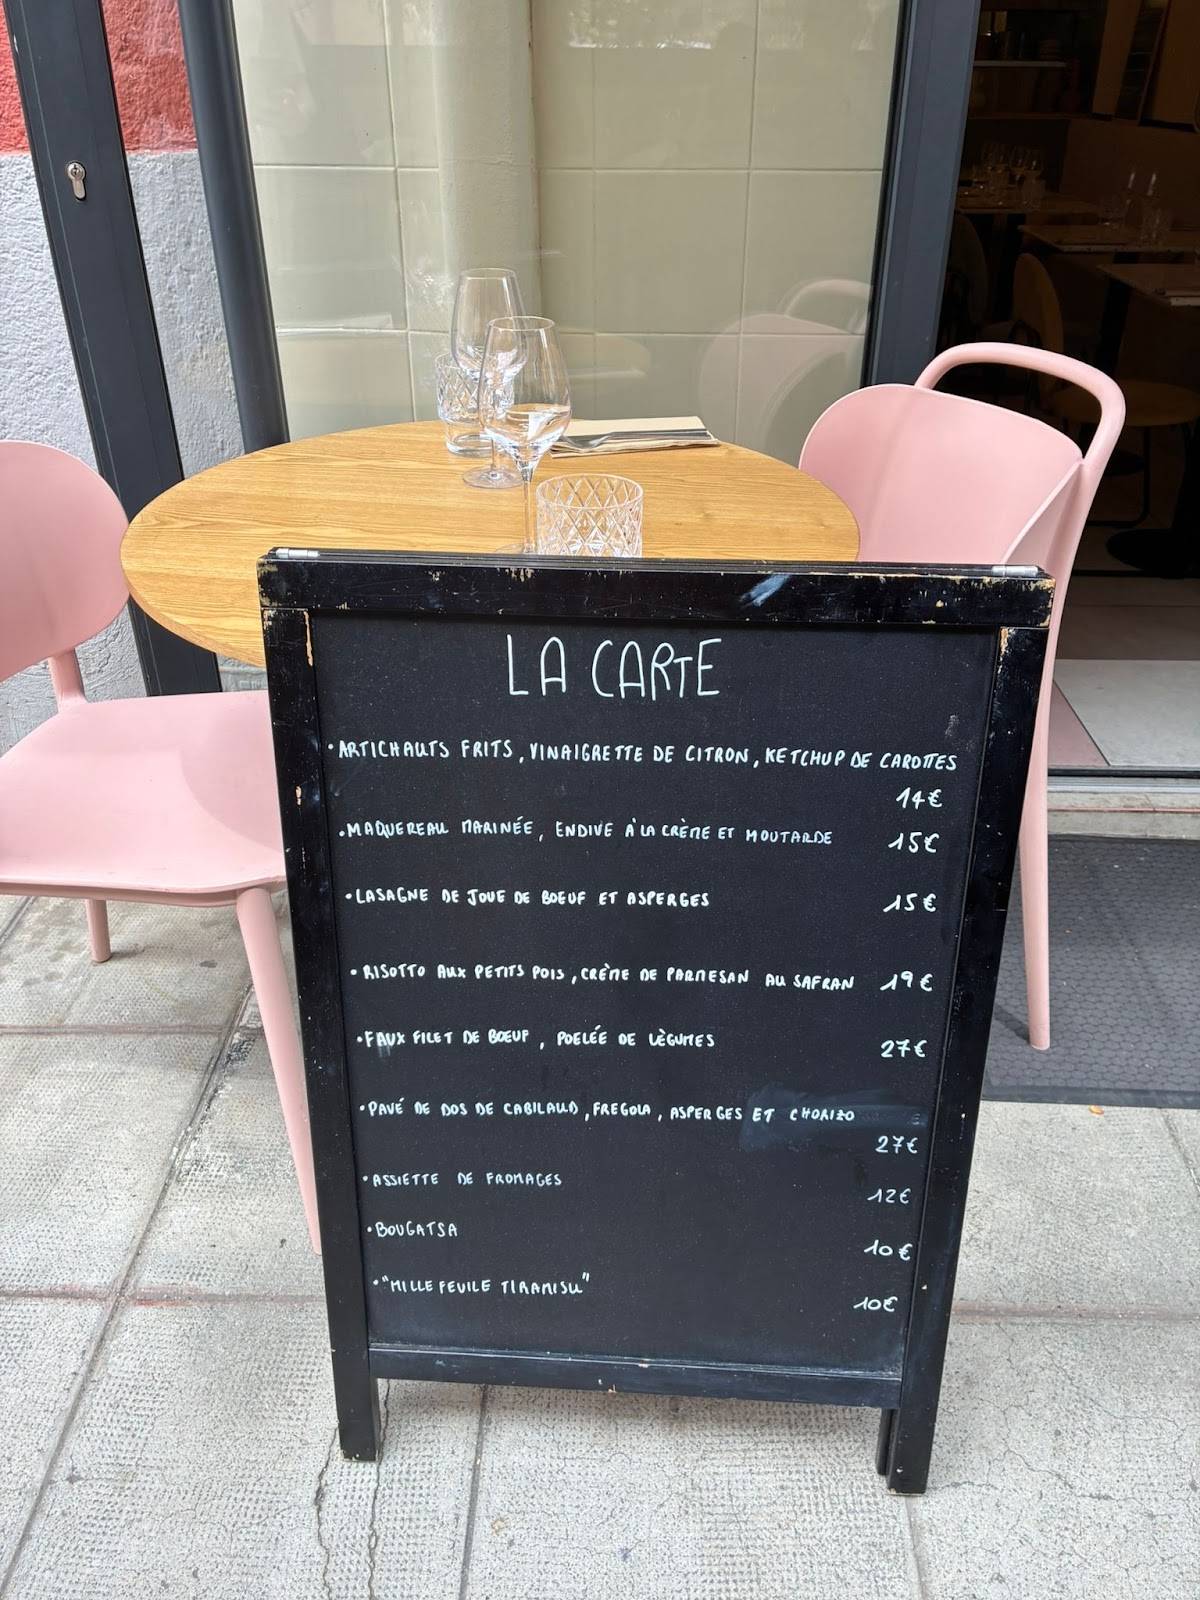 LA CARTE
• ARTICHAUTS FRITS, VINAIGRETTE DE CITRON, KETCHUP DE CAROTTES
14€
• MAQUEREAU MARINÉE, ENDIVE À LA CRÈME ET MOUTARDE 15€
• LASAGNE DE JOUE DE BOEUF ET ASPERGES 15€
• RISOTTO AUX PETITS POIS, CRÈME DE PARMESAN AU SAFRAN 19€
• FAUX FILET DE BOEUF, POELÉE DE LÈGUMES 27€
• PAVÉ DE DOS DE CABILAUD, FREGOLA, ASPERGES ET CHORIZO
27€
• ASSIETTE DE FROMAGES 12€
• BOUGATSA 10€
• "MILLE FEUILE TIRAMISU" 10€